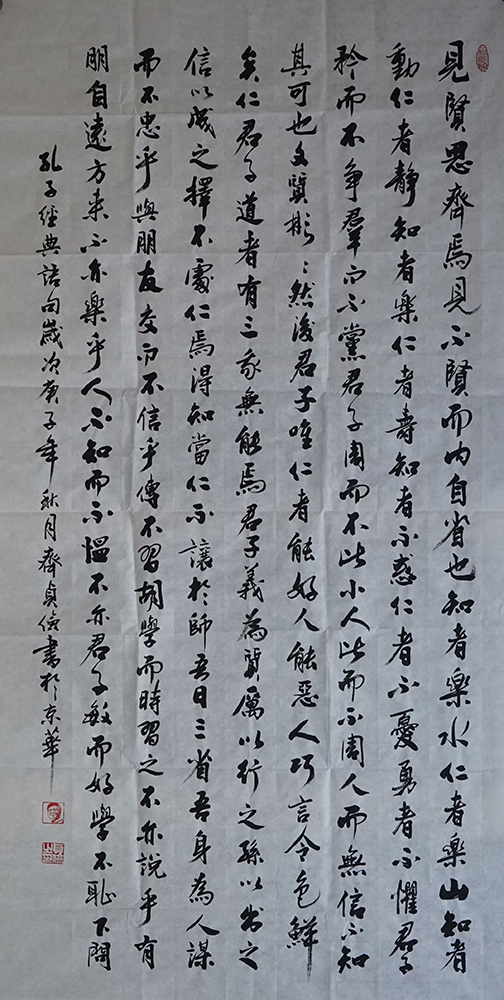 見賢思齊焉見不賢而内自省也知者樂水仁者樂山知者
動仁者靜知者樂仁者壽知者不惑仁者不憂勇者不懼君子
矜而不争羣而不黨君子周而不比小人比而不周人而無信不知
其可也文質彬〻然後君子唯仁者能好人能惡人巧言令色鮮
矣仁君子道者有三我無能焉君子義為質厲以行之孫以出之
信以成之擇不處仁焉得知當仁不讓於師吾日三省吾身為人謀
而不忠乎與朋友交而不信乎傳不習胡學而時習之不亦說乎有
朋自遠方来不亦樂乎人不知而不愠不亦君子敏而好學不恥下問
孔子經典語句歲次庚子年秋月齊貞儉書於京華